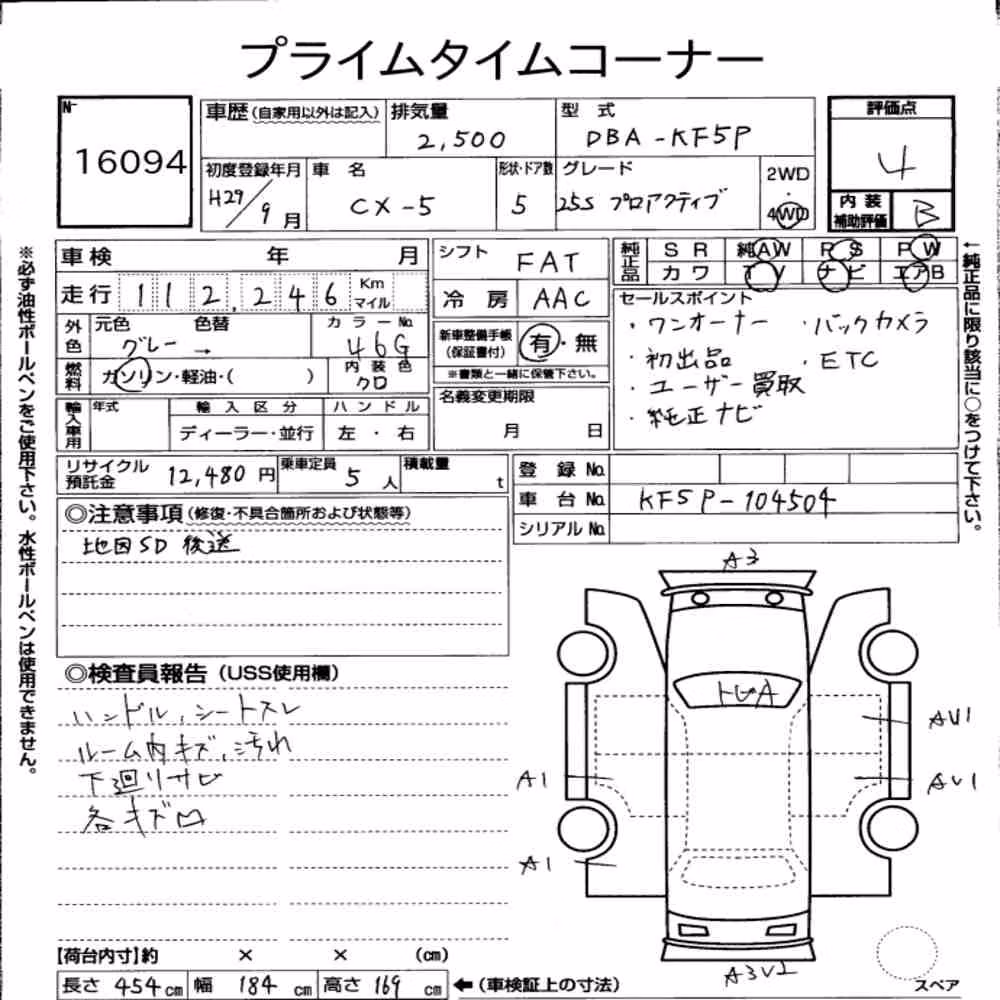 プライムタイムコーナー
No
16094
車歴(自家用以外は記入)
排気量
2,500
型 式
DBA-KF5P
評価点
4
初度登録年月
H29/9月
車 名
CX-5
形状・ドア数
5
グレード
25S プロアクティブ
2WD
・
4WD
内 装
補助評価
B
車検 年 月
走行 112,246 Km
マイル
シフト
FAT
冷 房 AAC
純正品
S R 純AW P S P W
カ ワ T V ナビ エアB
セールスポイント
・ワンオーナー ・バックカメラ
・初出品 ・ETC
・ユーザー買取
・純正ナビ
外色
元色 色替
グレー →
カ ラ ー No.
46G
新車整備手帳
(保証書付)
有・無
※書類と一緒に保管下さい。
燃料
ガソリン・軽油・( )
内 装 色
クロ
名義変更期限
月 日
輸入車用
年式
輸 入 区 分
ディーラー・並行
ハ ン ド ル
左 ・ 右
リサイクル
預託金
12,480円
乗車定員
5人
積載量
t
登 録 No.
車 台 No. KF5P-104504
シリアル No.
◎注意事項(修復・不具合箇所および状態等)
地図SD 後送
◎検査員報告(USS使用欄)
ハンドル,シートスレ
ルーム内キズ,汚れ
下廻りサビ
各キズ凹
A3
AU1
A1
AU1
A1
A3U2
スペア
【荷台内寸】約 × × (cm)
長さ 454cm 幅 184cm 高さ 169cm ←(車検証上の寸法)
※必ず油性ボールペンをご使用下さい。水性ボールペンは使用できません。
←純正品に限り該当に○をつけて下さい。